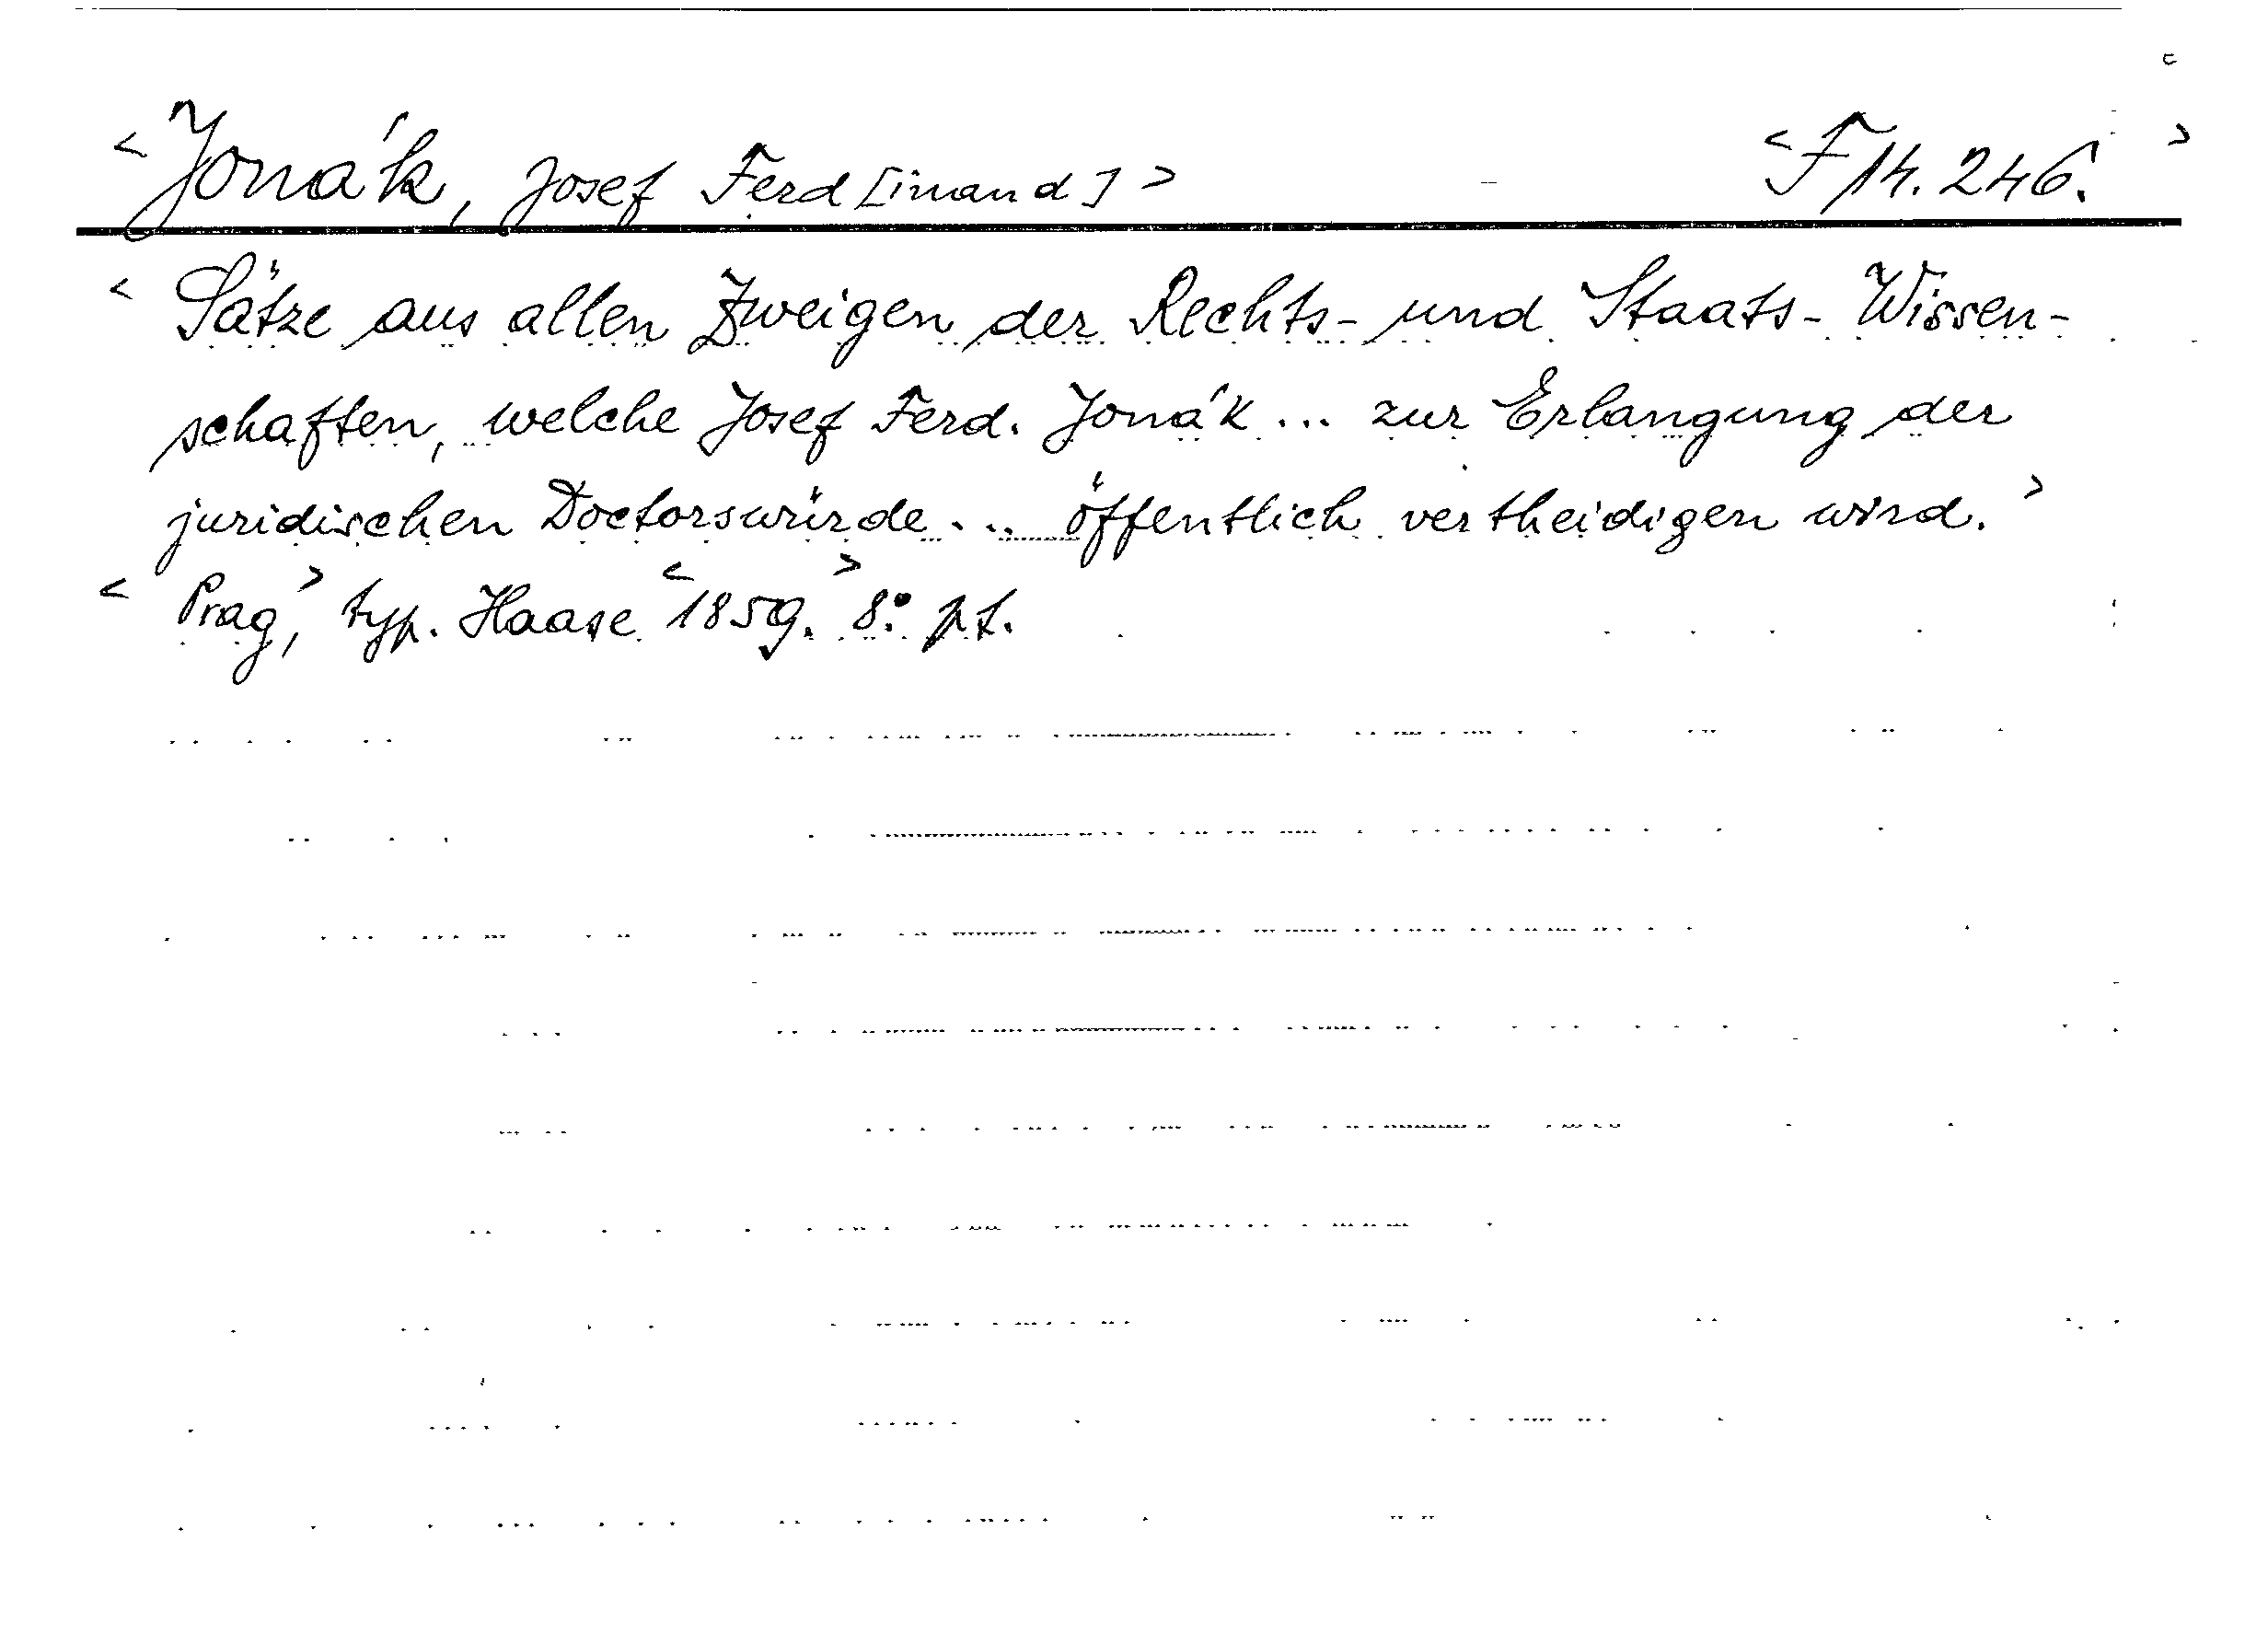 < Jonák, Josef Ferd[inand] > < F 14. 246. >
< Sätze aus allen Zweigen der Rechts- und Staats-Wissen-
schaften, welche Josef Ferd. Jonák ... zur Erlangung der
juridischen Doctorswürde ... öffentlich vertheidigen wird. >
< Prag, > typ. Haase < 1859. > 8° pt.